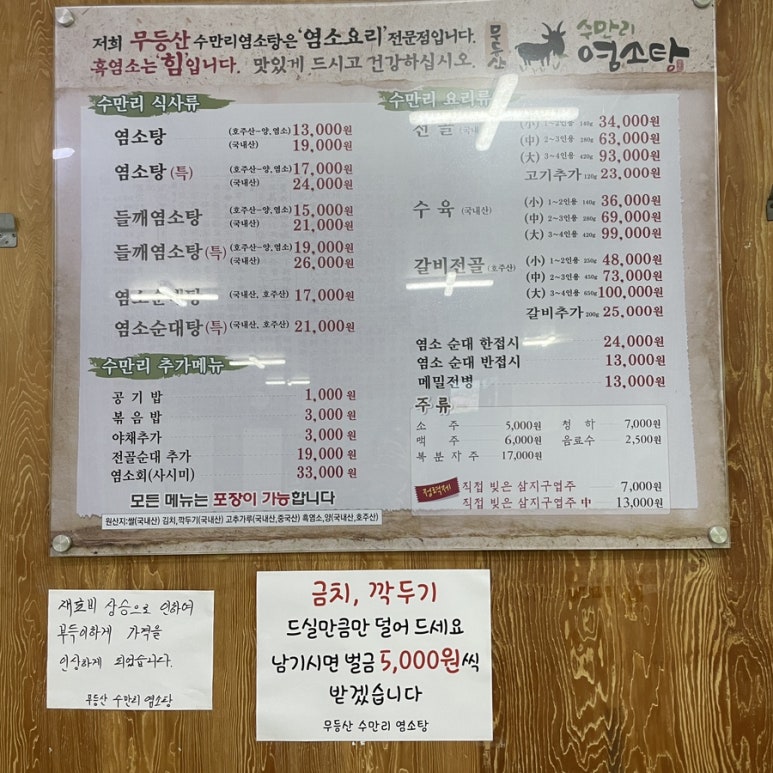 저희 무등산 수만리염소탕은 '염소요리' 전문점입니다.
흑염소는 '힘'입니다. 맛있게 드시고 건강하십시오.
무등산 수만리 염소탕
수만리 식사류
염소탕 (호주산-양,염소) 13,000원
(국내산) 19,000원
염소탕(특) (호주산-양,염소) 17,000원
(국내산) 24,000원
들깨염소탕 (호주산-양,염소) 15,000원
(국내산) 21,000원
들깨염소탕(특) (호주산-양,염소) 19,000원
(국내산) 26,000원
염소순대탕 (국내산, 호주산) 17,000원
염소순대탕(특) (국내산, 호주산) 21,000원
수만리 추가메뉴
공기밥 1,000원
볶음밥 3,000원
야채추가 3,000원
전골순대 추가 19,000원
염소회(사시미) 33,000원
모든 메뉴는 포장이 가능합니다
원산지:쌀(국내산) 김치,깍두기(국내산) 고추가루(국내산,중국산) 흑염소,양(국내산,호주산)
수만리 요리류
전골 (국내산) (小) 1~2인용 140g 34,000원
(中) 2~3인용 280g 63,000원
(大) 3~4인용 420g 93,000원
고기추가 120g 23,000원
수육 (국내산) (小) 1~2인용 140g 36,000원
(中) 2~3인용 280g 69,000원
(大) 3~4인용 420g 99,000원
갈비전골 (호주산) (小) 1~2인용 250g 48,000원
(中) 2~3인용 450g 73,000원
(大) 3~4인용 650g 100,000원
갈비추가 200g 25,000원
염소 순대 한접시 24,000원
염소 순대 반접시 13,000원
메밀전병 13,000원
주류
소주 5,000원 청하 7,000원
맥주 6,000원 음료수 2,500원
복분자주 17,000원
정력제 직접 빚은 삼지구엽주 7,000원
직접 빚은 삼지구엽주 中 13,000원
재료비 상승으로 인하여
부득이하게 가격을
인상하게 되었습니다.
무등산 수만리 염소탕
금치, 깍두기
드실만큼만 덜어 드세요
남기시면 벌금 5,000원씩
받겠습니다
무등산 수만리 염소탕